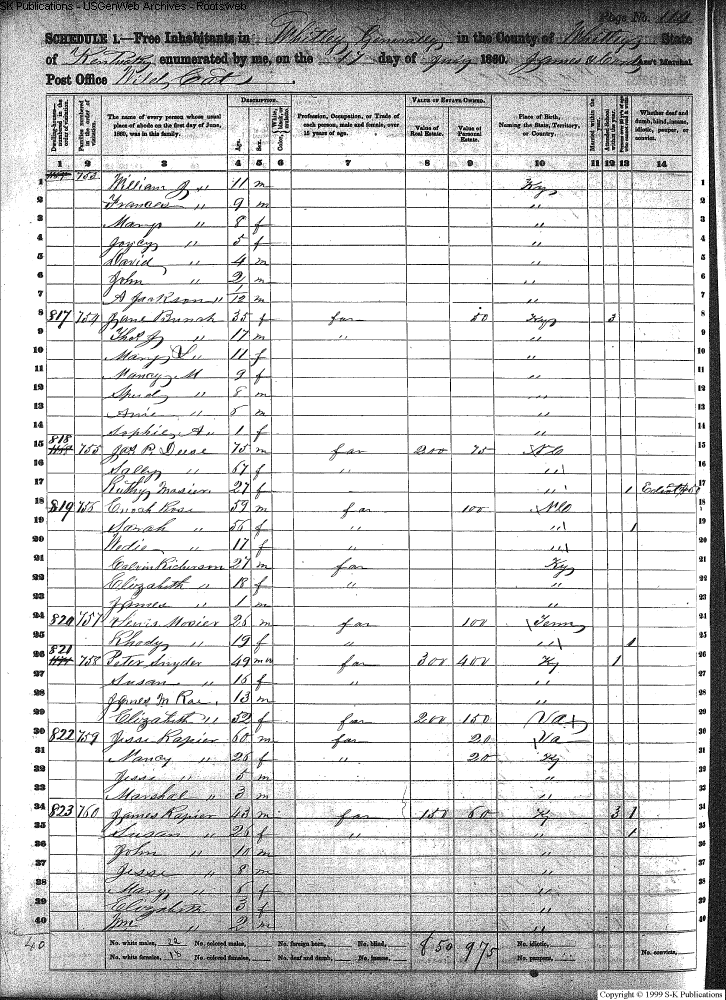 SK Publications - USGenWeb Archives - Rootsweb
Page No. 114
SCHEDULE 1.—Free Inhabitants in Whitley County in the County of Whitley State
of Kentucky enumerated by me, on the 17 day of July 1860. Ass't Marshal
Post Office Wild Cat
Dwelling-house— numbered in the order of visitation.
Families numbered in the order of visitation.
The name of every person whose usual place of abode on the first day of June, 1860, was in this family.
DESCRIPTION.
Age.
Sex.
Color, White, black, or mulatto.
Profession, Occupation, or Trade of each person, male and female, over 15 years of age.
VALUE OF ESTATE OWNED.
Value of Real Estate.
Value of Personal Estate.
Place of Birth, Naming the State, Territory, or Country.
Married within the year.
Attended School within the year.
Whether deaf and dumb, blind, insane, idiotic, pauper, or convict.
1 2 3 4 5 6 7 8 9 10 11 12 13 14
1 753 William J " 11 m Ky 1
2 Frances " 9 m " 2
3 Mary " 8 f " 3
4 " 5 f " 4
5 David " 4 m " 5
6 John " 2 m " 6
7 A Jackson " 1/12 m " 7
8 817 754 Jane Bunch 35 f far 50 Ky 3 8
9 Thos J " 17 m " " 9
10 Mary L " 11 f " 10
11 Nancy M 9 f " 11
12 " 8 m " 12
13 " 5 m " 13
14 Sophie A " 1 f " 14
15 818 755 Jas P Deese 75 m far 200 75 N C 15
16 Sally " 67 f " " 16
17 Ruthy Mosier 27 f - " 1 17
18 819 756 Enoch Rose 59 m far 100 N C 18
19 Sarah " 56 f " " 1 19
20 " 17 f " " 20
21 Calvin Richerson 27 m far Ky 21
22 Elizabeth " 18 f " " 22
23 James " 1 m " 23
24 820 757 Lewis Mosier 25 m far 100 Tenn 24
25 Rhody " 19 f " " 1 25
26 821 758 Peter Snyder 49 m far 300 400 Ky 1 26
27 Susan " 16 f " " 27
28 James M Rose 13 m " 28
29 Elizabeth " 52 f far 200 150 Va 29
30 822 759 Jesse Rapier 60 m far 20 Va 30
31 Nancy " 26 f " 20 Ky 31
32 Jesse " 5 m " 32
33 Marshal " 3 m " 33
34 823 760 James Rapier 43 m far 150 60 K 3 1 34
35 Susan " 26 f " " 1 35
36 John " 10 m " 36
37 Jesse " 8 m " 37
38 Mary " 6 f " 38
39 Elizabeth 3 f " 39
40 Wm " 2 m " 40
40 No. white males, 22 No. colored males, No. foreign born, No. blind, 850 975 No. idiotic,
No. white females, 18 No. colored females, No. deaf and dumb, No. insane, No. paupers, No. convicts,
Copyright © 1999 S-K Publications